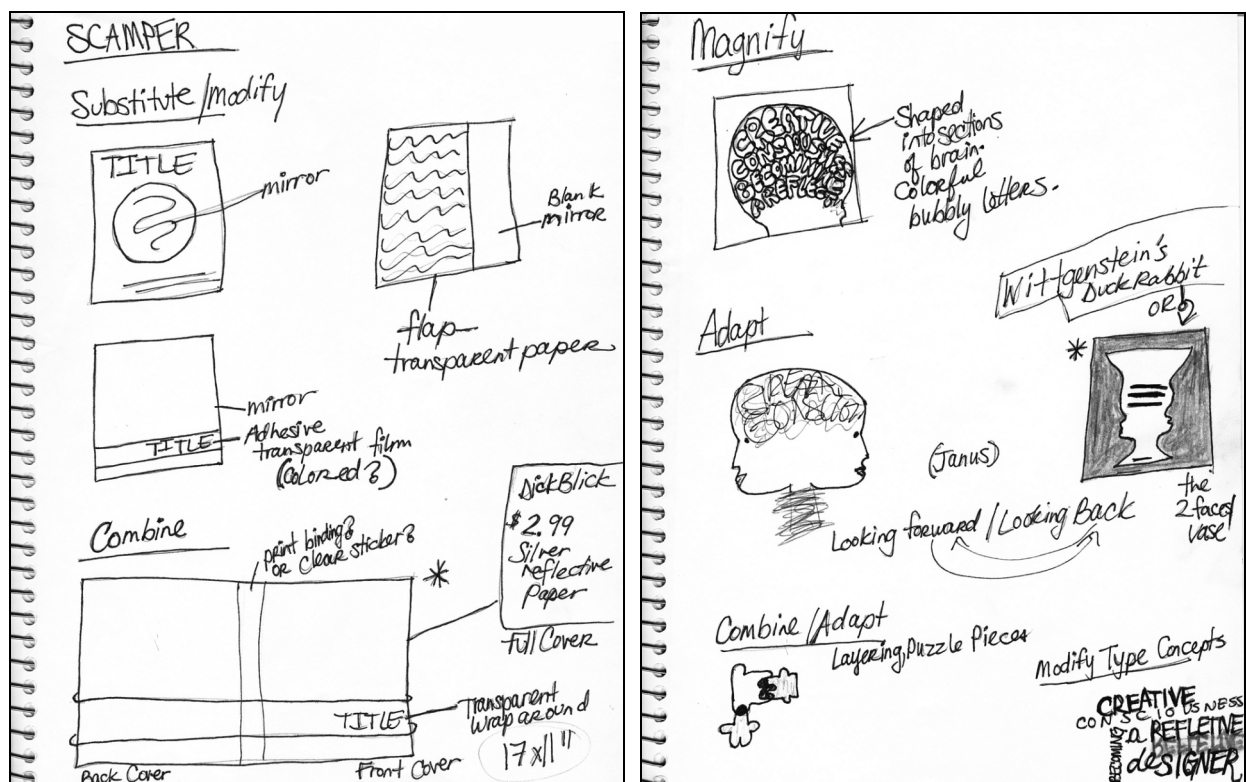 SCAMPER
Substitute/modify
TITLE
mirror
Blank
mirror
flap
transparent paper
mirror
TITLE
Adhesive
transparent film
(Colored?)
Combine
print binding?
or clear sticker?
*
DickBlick
$2.99
Silver
reflective
Paper
Full Cover
TITLE
Transparent
Wrap around
17x11"
Back Cover
Front Cover
Magnify
CREATIVE
CONSCIOUSNESS
BECOMING
A REFLECTIVE
Shaped
into sections
of brain.
Colorful
bubbly letters.
Wittgenstein's
Duck Rabbit
OR
Adapt
*
(Janus)
the
2 faces
vase
Looking forward/Looking Back
Combine/Adapt
Layering, Puzzle Pieces
Modify Type Concepts
CREATIVE
CONSCIOUSNESS
BECOMING
a REFLETIVE
desIGNER